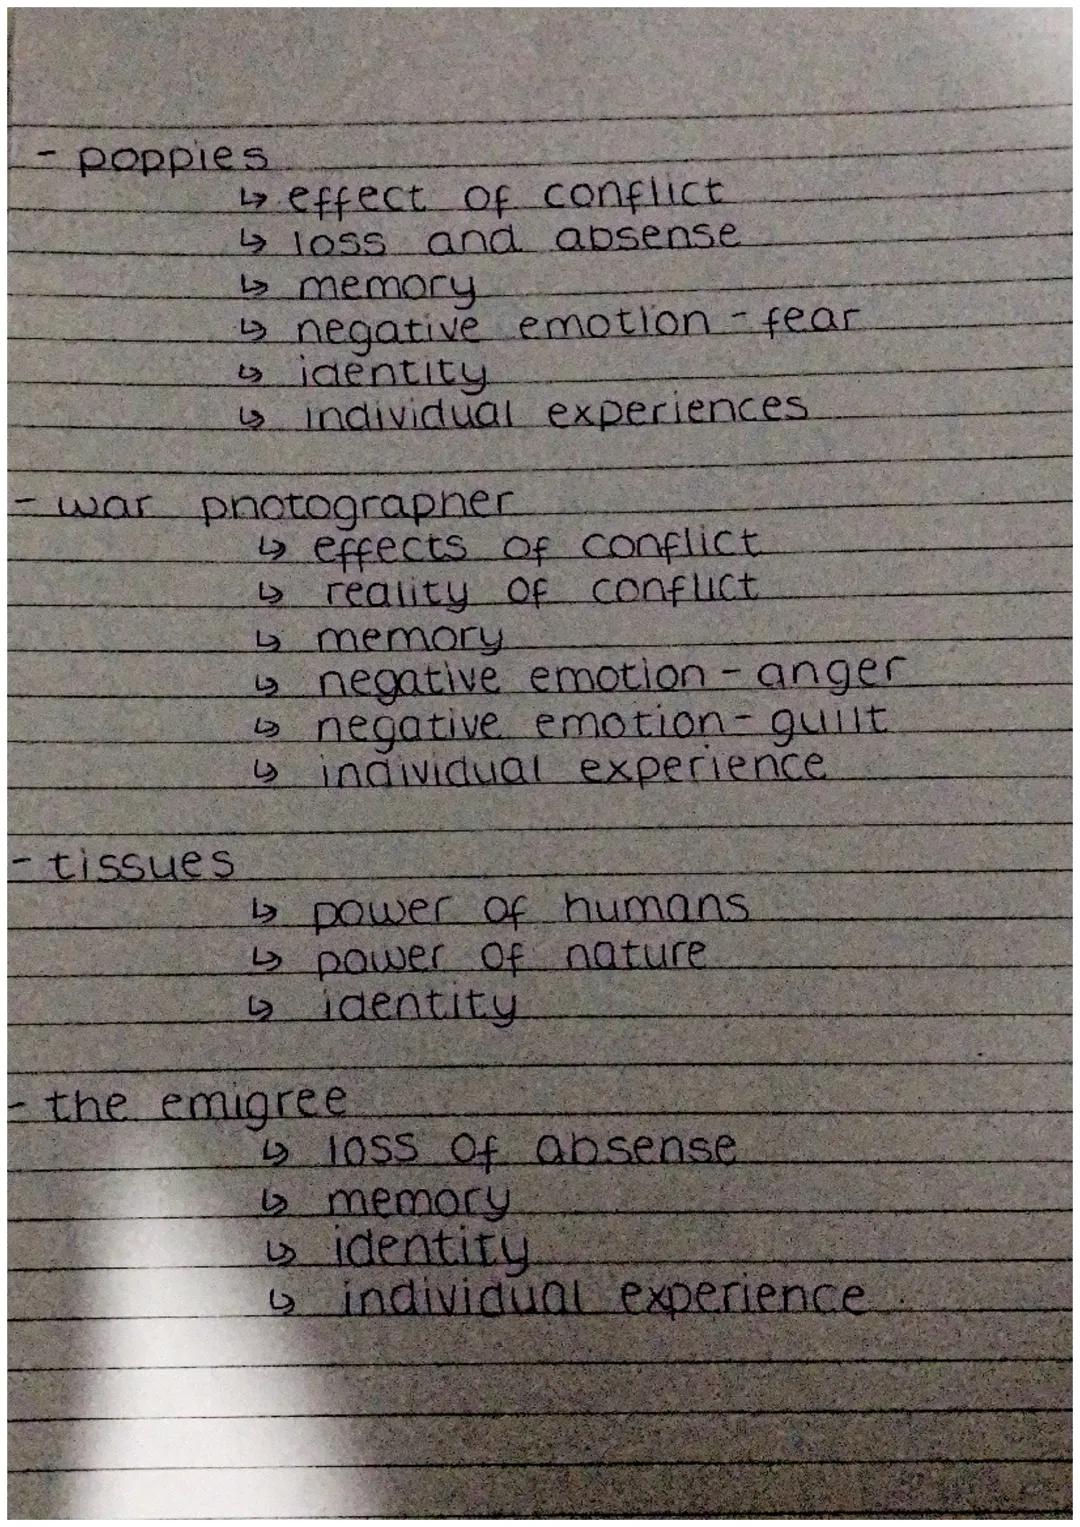 - poppies
↳ effect of conflict
↳ loss and absense
↳ memory
↳ negative emotion - fear
↳ identity
↳ individual experiences
- war photographer
↳ effects of conflict
↳ reality of conflict
↳ memory
↳ negative emotion - anger
↳ negative emotion - guilt
↳ individual experience
- tissues
↳ power of humans
↳ power of nature
↳ identity
- the emigree
↳ loss of absense
↳ memory
↳ identity
↳ individual experience